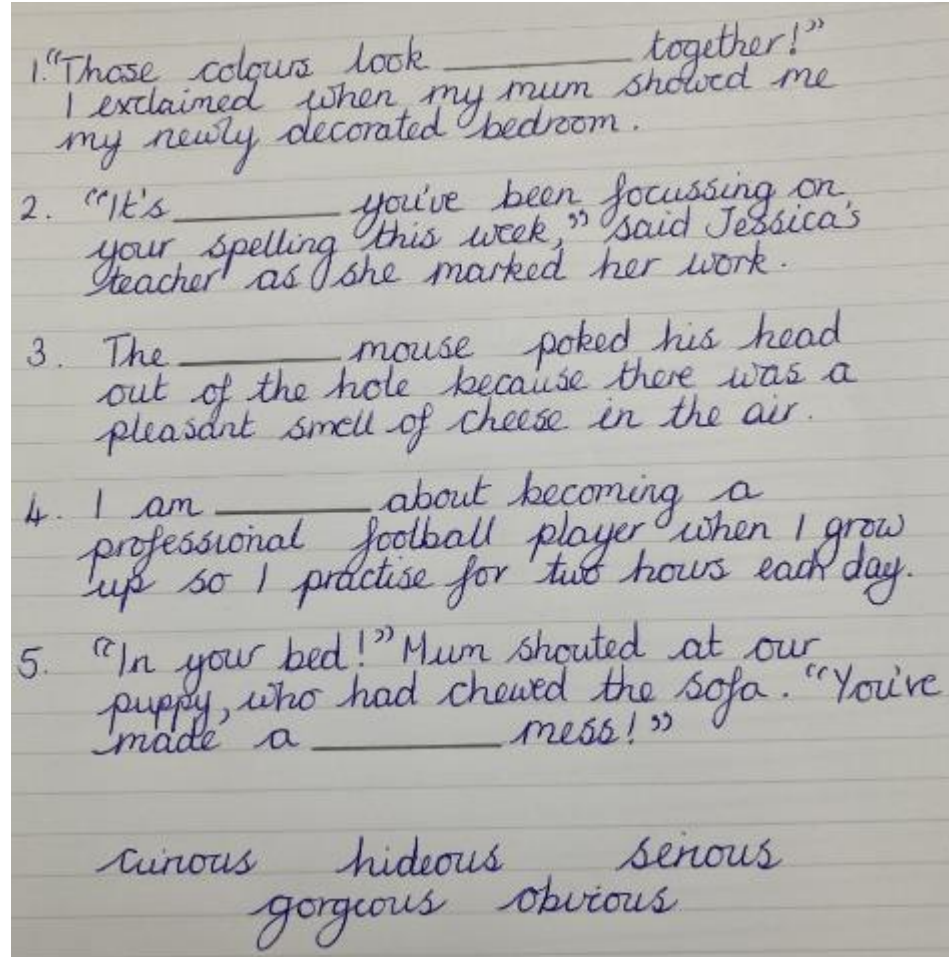 1. "Those colours look ________ together!"
I exclaimed when my mum showed me
my newly decorated bedroom.
2. "It's ________ you've been focussing on
your spelling this week," said Jessica's
teacher as she marked her work.
3. The ________ mouse poked his head
out of the hole because there was a
pleasant smell of cheese in the air.
4. I am ________ about becoming a
professional football player when I grow
up so I practise for two hours each day.
5. "In your bed!" Mum shouted at our
puppy, who had chewed the sofa. "You've
made a ________ mess!"
curious hideous serious
gorgeous obvious